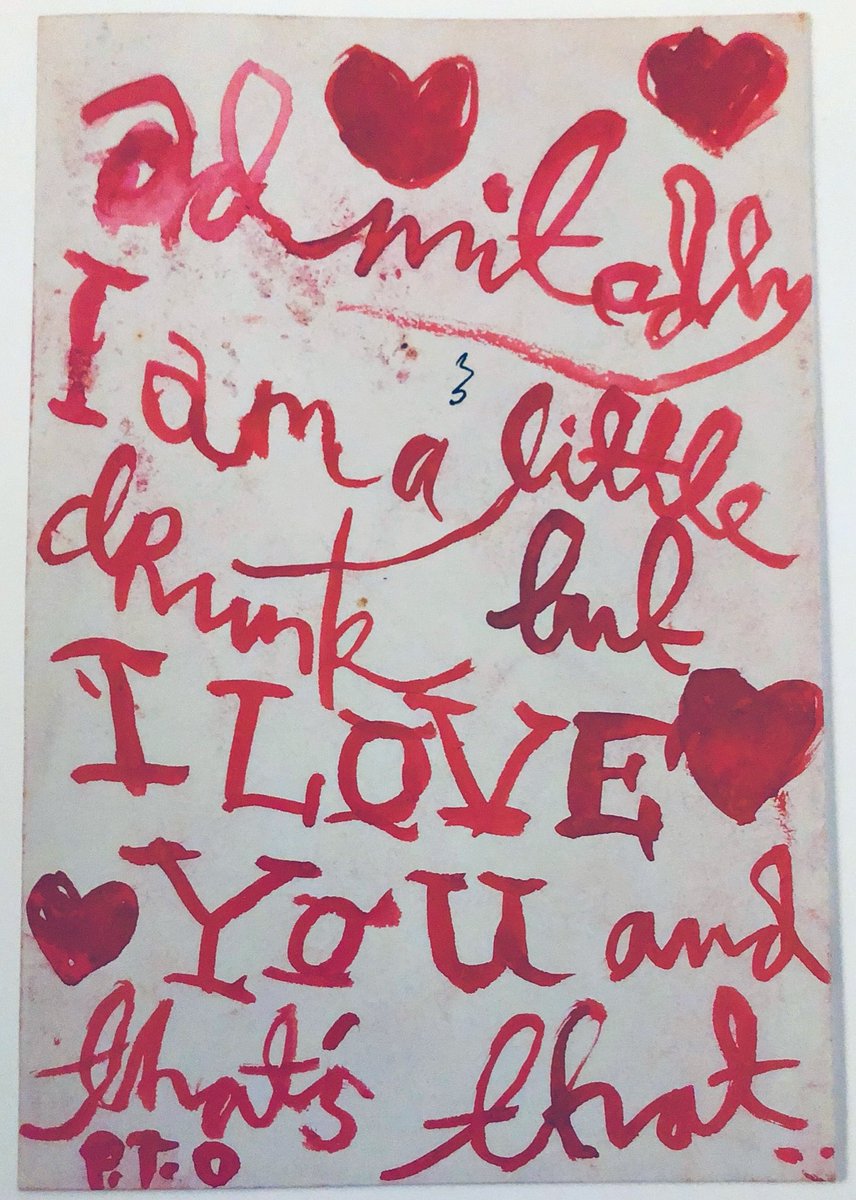 admitedly
I am a little
drunk but
I LOVE
YOU and
that's that..
P.T.O